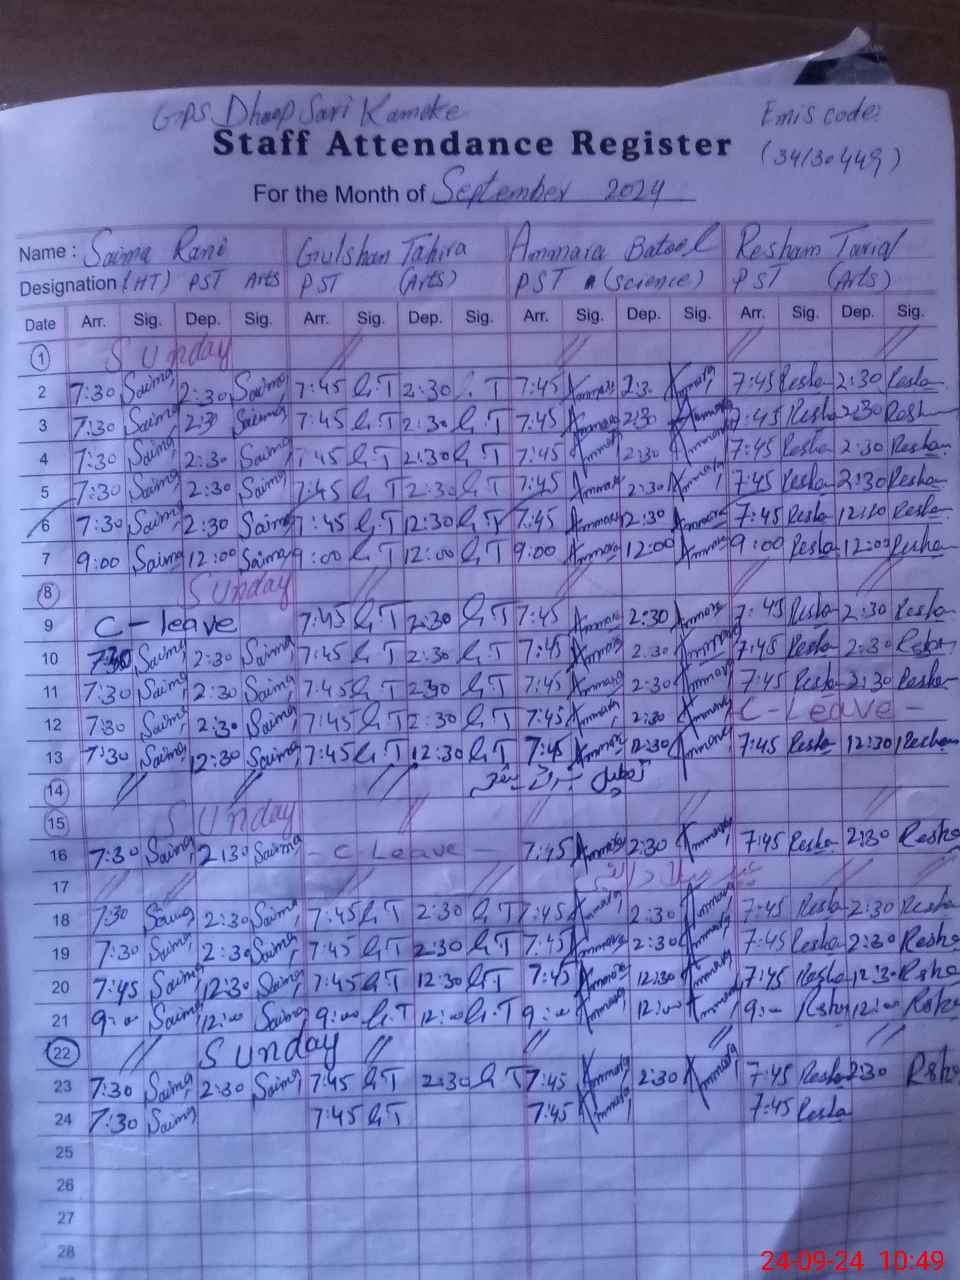 GPS Dhoop Sari Kamoke
Emis code:
Staff Attendance Register (34130449)
For the Month of September 2024
Name : Saima Rani Gulshan Tahira Ammara Batool Resham Tariq
Designation (HT) PST Arts PST (Arts) PST (Science) PST (Arts)
Date Arr. Sig. Dep. Sig. Arr. Sig. Dep. Sig. Arr. Sig. Dep. Sig. Arr. Sig. Dep. Sig.
1 Sunday
2 7:30 Saima 2:30 Saima 7:45 G.T 2:30 G.T 7:45 Ammara 2:3 Ammara 7:45 Resha 2:30 Resha
3 7:30 Saima 2:30 Saima 7:45 G.T 2:30 G.T 7:45 Ammara 2:30 Ammara 7:45 Resha 2:30 Resh
4 7:30 Saima 2:30 Saima 7:45 G T 2:30 G T 7:45 Ammara 2:30 Ammara 7:45 Resha 2:30 Resham
5 7:30 Saima 2:30 Saima 7:45 G T 2:30 G T 7:45 Ammara 2:30 Ammara 7:45 Resha 2:30 Resha
6 7:30 Saima 2:30 Saima 7:45 G T 12:30 G T 7:45 Ammara 2:30 Ammara 7:45 Resha 12:30 Resha
7 9:00 Saima 12:00 Saima 9:00 G T 12:00 G T 9:00 Ammara 12:00 Ammara 9:00 Resha 12:00 Resham
8 Sunday
9 C-leave 7:45 G T 2:30 G T 7:45 Ammara 2:30 Ammara 7:45 Resha 2:30 Resha
10 7:30 Saima 2:30 Saima 7:45 G T 2:30 G T 7:45 Ammara 2:30 Ammara 7:45 Resha 2:30 Resham
11 7:30 Saima 2:30 Saima 7:45 G T 2:30 G T 7:45 Ammara 2:30 Ammara 7:45 Resha 2:30 Resha
12 7:30 Saima 2:30 Saima 7:45 G T 2:30 G T 7:45 Ammara 2:30 Ammara C-Leave-
13 7:30 Saima 12:30 Saima 7:45 G T 12:30 G T 7:45 Ammara 12:30 Ammara 7:45 Resha 12:30 Resham
14
15 Sunday
16 7:30 Saima 2:30 Saima - C Leave - 7:45 Ammara 2:30 Ammara 7:45 Resha 2:30 Resha
17
18 7:30 Saima 2:30 Saima 7:45 G T 2:30 G T 7:45 Ammara 2:30 Ammara 7:45 Resha 2:30 Resha
19 7:30 Saima 2:30 Saima 7:45 G T 2:30 G T 7:45 Ammara 2:30 Ammara 7:45 Resha 2:30 Resha
20 7:45 Saima 12:30 Saima 7:45 G T 12:30 G.T 7:45 Ammara 12:30 Ammara 7:45 Resha 12:30 Resha
21 9:00 Saima 12:00 Saima 9:00 G.T 12:00 G.T 9:00 Ammara 12:00 Ammara 9:00 Resha 12:00 Resha
22 Sunday
23 7:30 Saima 2:30 Saima 7:45 G T 2:30 G T 7:45 Ammara 2:30 Ammara 7:45 Resha 2:30 Resha
24 7:30 Saima 7:45 G T 7:45 Ammara 7:45 Resha
25
26
27
28
24-09-24 10:49